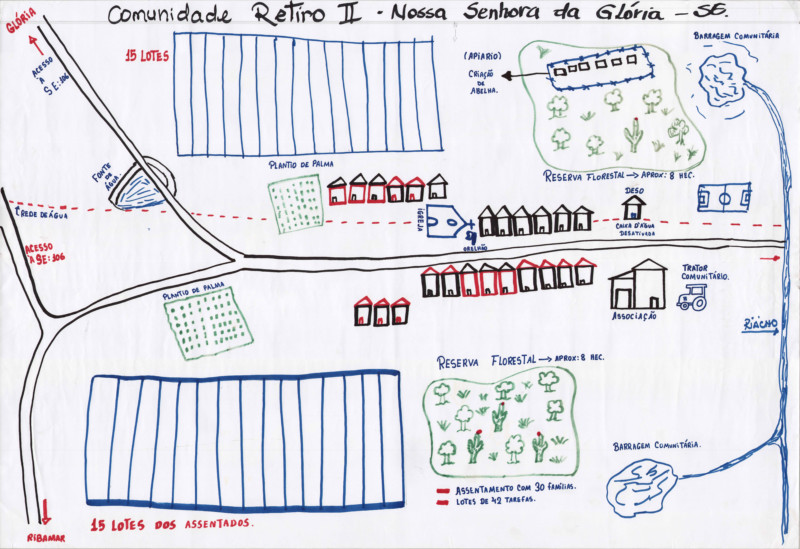 Comunidade Retiro II - Nossa Senhora da Glória - SE.
GLÓRIA
ACESSO
À
SE:106
15 LOTES
(APIARIO)
CRIAÇÃO
DE
ABELHA.
BARRAGEM COMUNITÁRIA
FONTE
DE
ÁGUA.
PLANTIO DE PALMA
RESERVA FLORESTAL → APROX: 8 HEC.
REDE DE ÁGUA
IGREJA
ORELHÃO
DESO
CAIXA D'ÁGUA
DESATIVADA
ACESSO
À SE:106
PLANTIO DE PALMA
TRATOR
COMUNITÁRIO.
ASSOCIAÇÃO
RIÁCHO
RESERVA FLORESTAL → APROX: 8 HEC.
BARRAGEM COMUNITÁRIA.
ASSENTAMENTO COM 30 FAMÍLIAS.
LOTES DE 42 TAREFAS.
15 LOTES DOS ASSENTADOS.
RIBAMAR